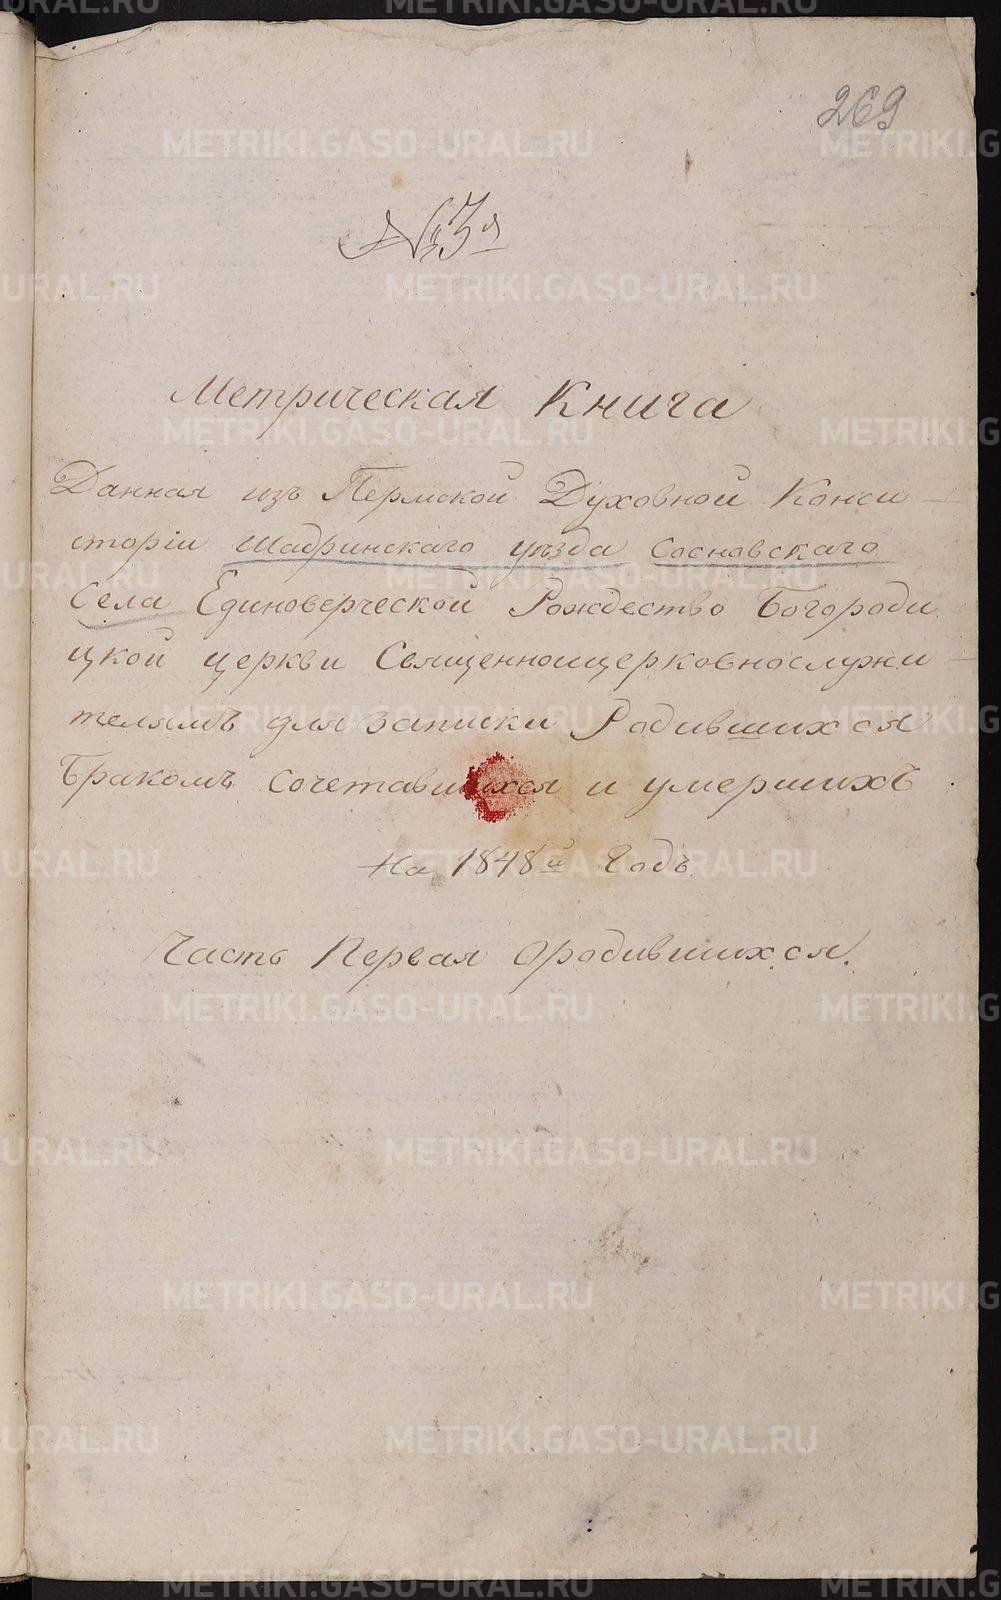 269
№ 3й
Метрическая Книга
Данная изъ Пермской Духовной Конси
сторіи Шадринскаго уѣзда Сосновскаго
Села Единоверческой Рождество Богороди
цкой церкви Священноицерковнослужи
телямъ для записки Родившихся
Бракомъ сочетавшихся и умершихъ
На 1848й Годъ.
Часть Первая ородившихся.
METRIKI.GASO-URAL.RU